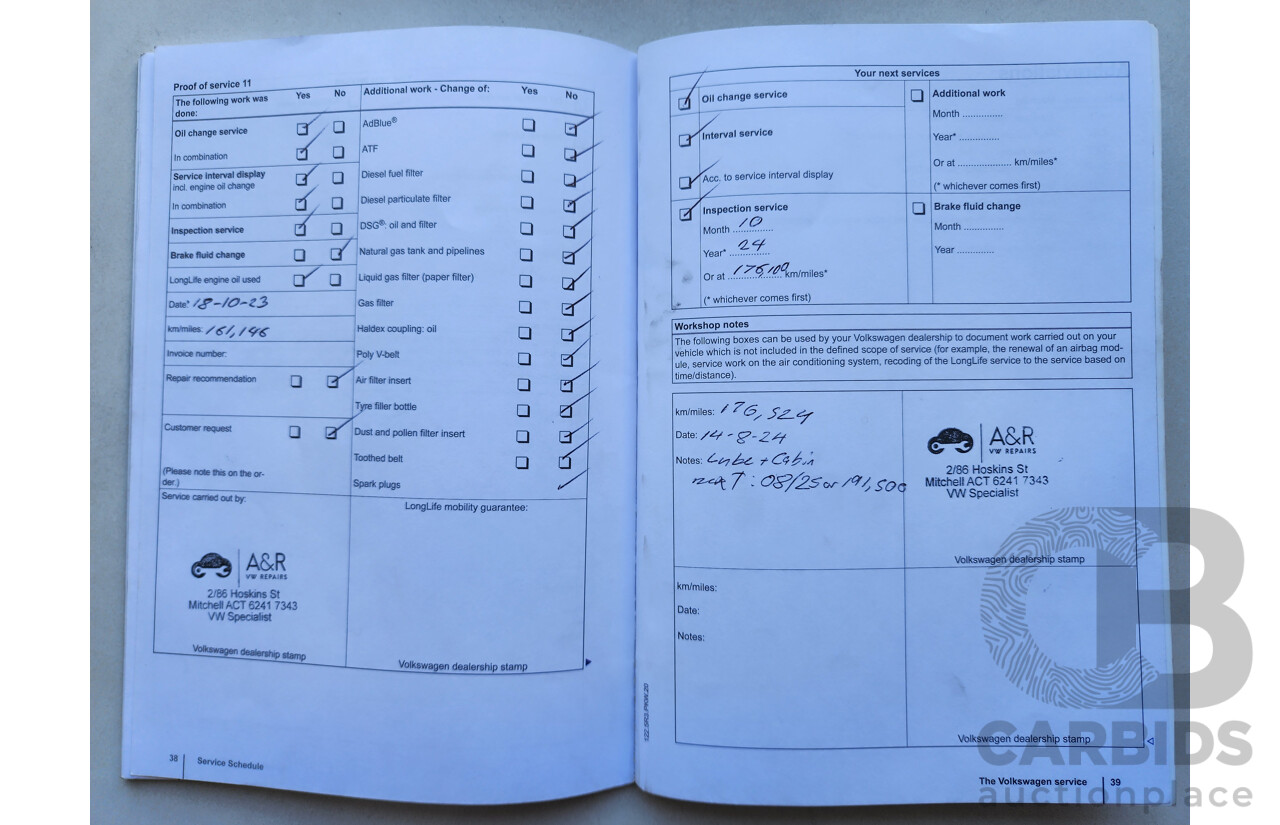 Proof of service 11
The following work was done: Yes No
Additional work - Change of: Yes No
Oil change service
In combination
Service interval display
incl. engine oil change
In combination
Inspection service
Brake fluid change
LongLife engine oil used
Date* 18-10-23
km/miles: 161,146
Invoice number:
Repair recommendation
Customer request
(Please note this on the or-
der.)
AdBlue®
ATF
Diesel fuel filter
Diesel particulate filter
DSG®: oil and filter
Natural gas tank and pipelines
Liquid gas filter (paper filter)
Gas filter
Haldex coupling: oil
Poly V-belt
Air filter insert
Tyre filler bottle
Dust and pollen filter insert
Toothed belt
Spark plugs
Service carried out by:
A&R
VW REPAIRS
2/86 Hoskins St
Mitchell ACT 6241 7343
VW Specialist
Volkswagen dealership stamp
LongLife mobility guarantee:
Volkswagen dealership stamp
38 Service Schedule
Your next services
Oil change service
Interval service
Acc. to service interval display
Inspection service
Month 10
Year* 24
Or at 176,100 km/miles*
(* whichever comes first)
Additional work
Month ..............
Year* ..............
Or at .................... km/miles*
(* whichever comes first)
Brake fluid change
Month ..............
Year ..............
Workshop notes
The following boxes can be used by your Volkswagen dealership to document work carried out on your
vehicle which is not included in the defined scope of service (for example, the renewal of an airbag mod-
ule, service work on the air conditioning system, recoding of the LongLife service to the service based on
time/distance).
km/miles: 176,524
Date: 14-8-24
Notes: Lube + Cabin
next: 08/25 or 191,500
A&R
VW REPAIRS
2/86 Hoskins St
Mitchell ACT 6241 7343
VW Specialist
Volkswagen dealership stamp
km/miles:
Date:
Notes:
Volkswagen dealership stamp
The Volkswagen service 39
CARBIDS
auctionplace